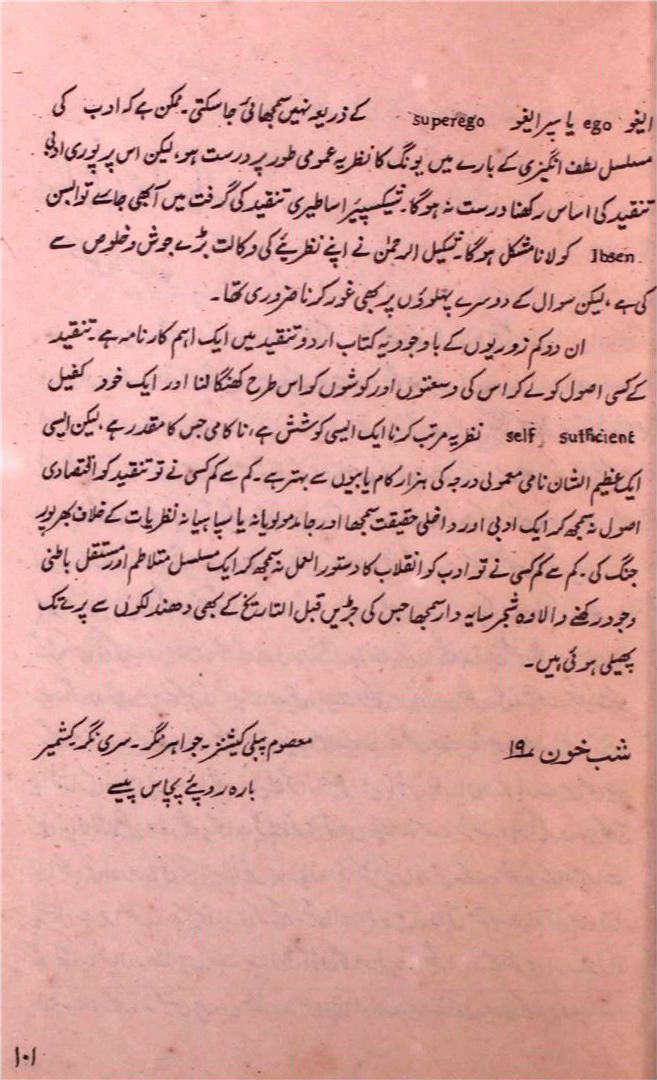 ایغو ego یا سپر ایغو superego کے ذریعہ نہیں سمجھائی جا سکتی۔ ممکن ہے کہ ادب کی
مسلسل لطف انگیزی کے بارے میں یونگ کا نظریہ عمومی طور پر درست ہو، لیکن اس پر پوری ادبی
تنقید کی اساس رکھنا درست نہ ہوگا۔ شیکسپیئر اساطیری تنقید کی گرفت میں آ بھی جائے تو ابسن
Ibsen کو لانا مشکل ہوگا۔ شکیل الرحمٰن نے اپنے نظریئے کی وکالت بڑے جوش و خلوص سے
کی ہے، لیکن سوال کے دوسرے پہلوؤں پر بھی غور کرنا ضروری تھا۔
ان دو کم زوریوں کے باوجود یہ کتاب اردو تنقید میں ایک اہم کارنامہ ہے۔ تنقید
کے کسی اصول کو لے کر اس کی وسعتوں اور گوشوں کو اس طرح کھنگالنا اور ایک خود کفیل
self sufficient نظریہ مرتب کرنا ایک ایسی کوشش ہے، ناکامی جس کا مقدر ہے، لیکن ایسی
ایک عظیم الشان نامی معمولی درجہ کی ہزار کام یابیوں سے بہتر ہے۔ کم سے کم کسی نے تو تنقید کو اقتصادی
اصول نہ سمجھ کر ایک ادبی اور داخلی حقیقت سمجھا اور جامد مولویانہ یا سپاہیانہ نظریات کے خلاف بھرپور
جنگ کی۔ کم سے کم کسی نے تو ادب کو انقلاب کا دستور العمل نہ سمجھ کر ایک مسلسل متلاطم اور مستقل باطنی
وجود رکھنے والا وہ شجر سایہ دار سمجھا جس کی جڑیں قبل التاریخ کے بھی دھندلکوں سے پرے تک
پھیلی ہوئی ہیں۔
شب خون ۱۹؍ معصوم پبلی کیشنز۔ جواہر نگر۔ سری نگر۔ کشمیر
بارہ روپئے پچاس پیسے
۱۰۱